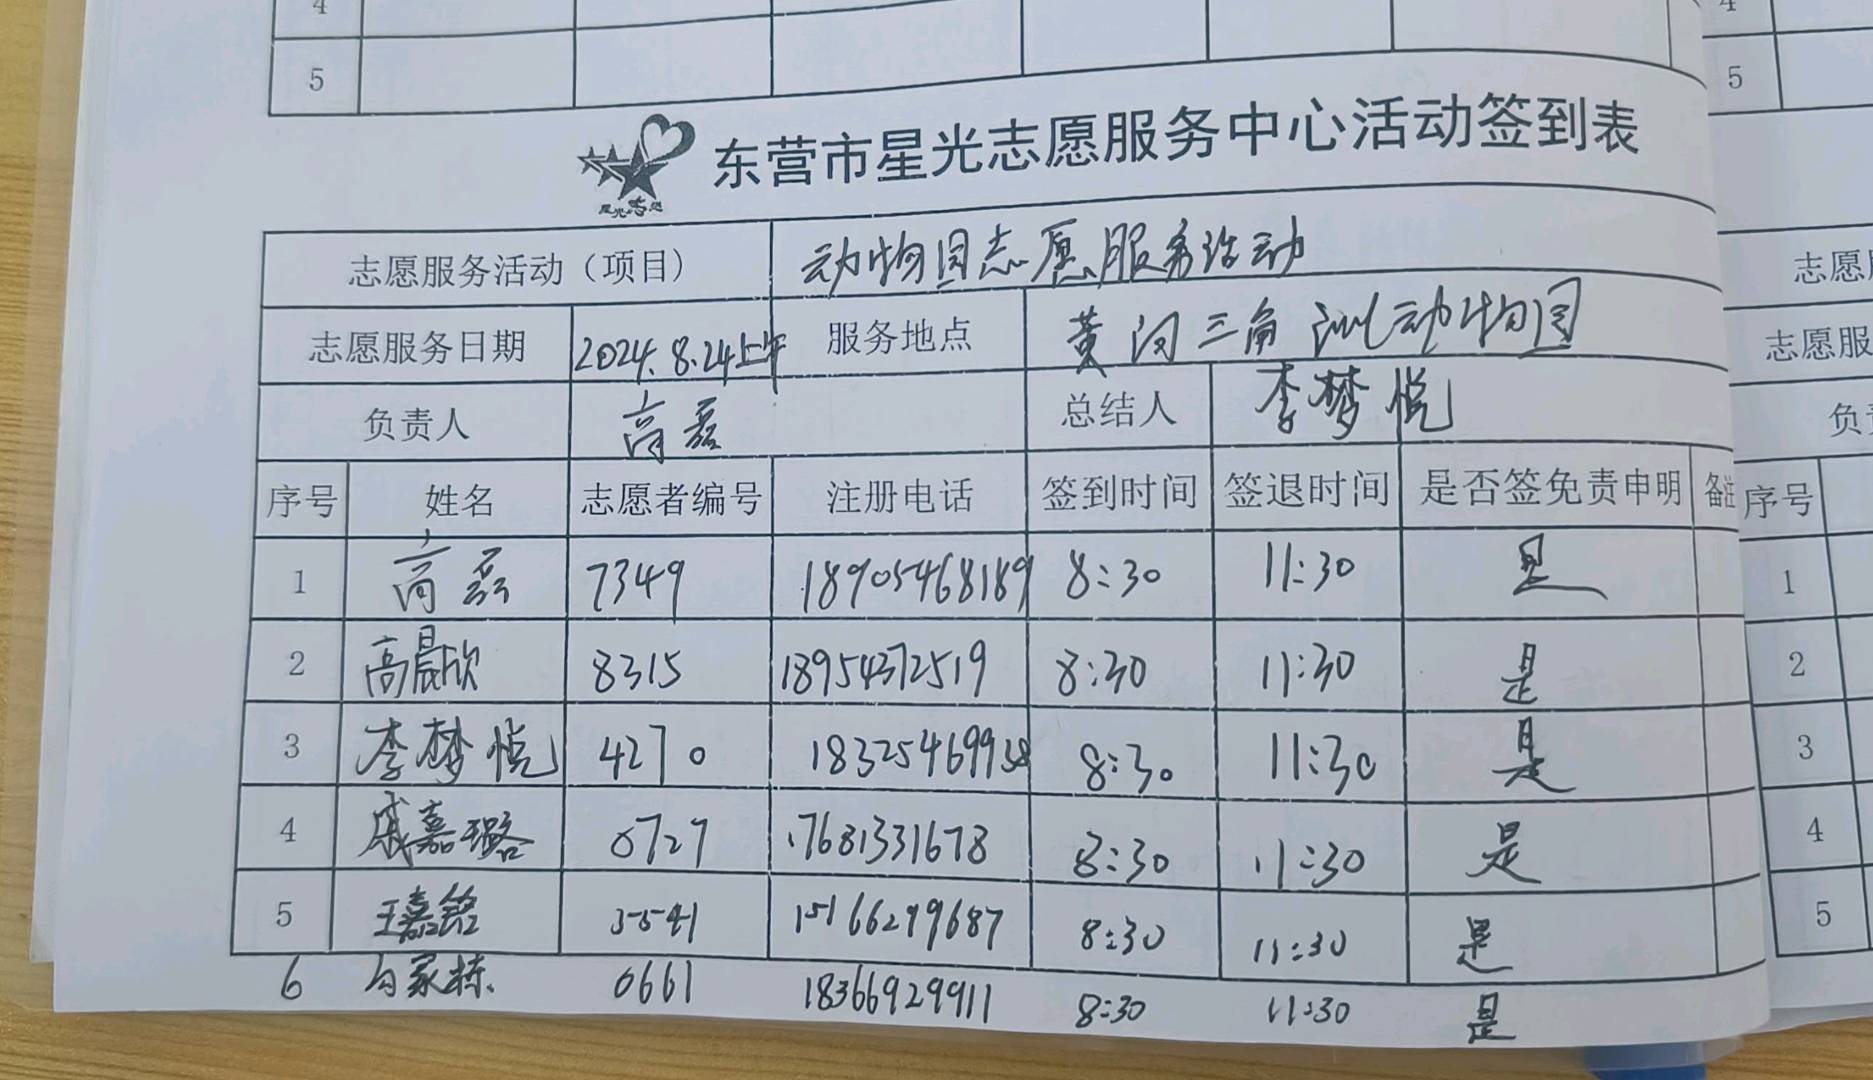 4
5
4
5
星光志愿
东营市星光志愿服务中心活动签到表
志愿服务活动（项目） 动物园志愿服务活动
志愿服务日期 2024.8.24上午 服务地点 黄河三角洲动物园
负责人 高磊 总结人 李梦悦
序号 姓名 志愿者编号 注册电话 签到时间 签退时间 是否签免责申明 备注
1 高磊 7349 18905468189 8:30 11:30 是
2 高晨欣 8315 18954372519 8:30 11:30 是
3 李梦悦 4270 18325469938 8:30 11:30 是
4 戚嘉璐 0727 17681331678 8:30 11:30 是
5 王嘉铭 5541 15166299687 8:30 11:30 是
6 家栋 0661 18366929911 8:30 11:30 是
志愿
志愿服
负
序号
1
2
3
4
5